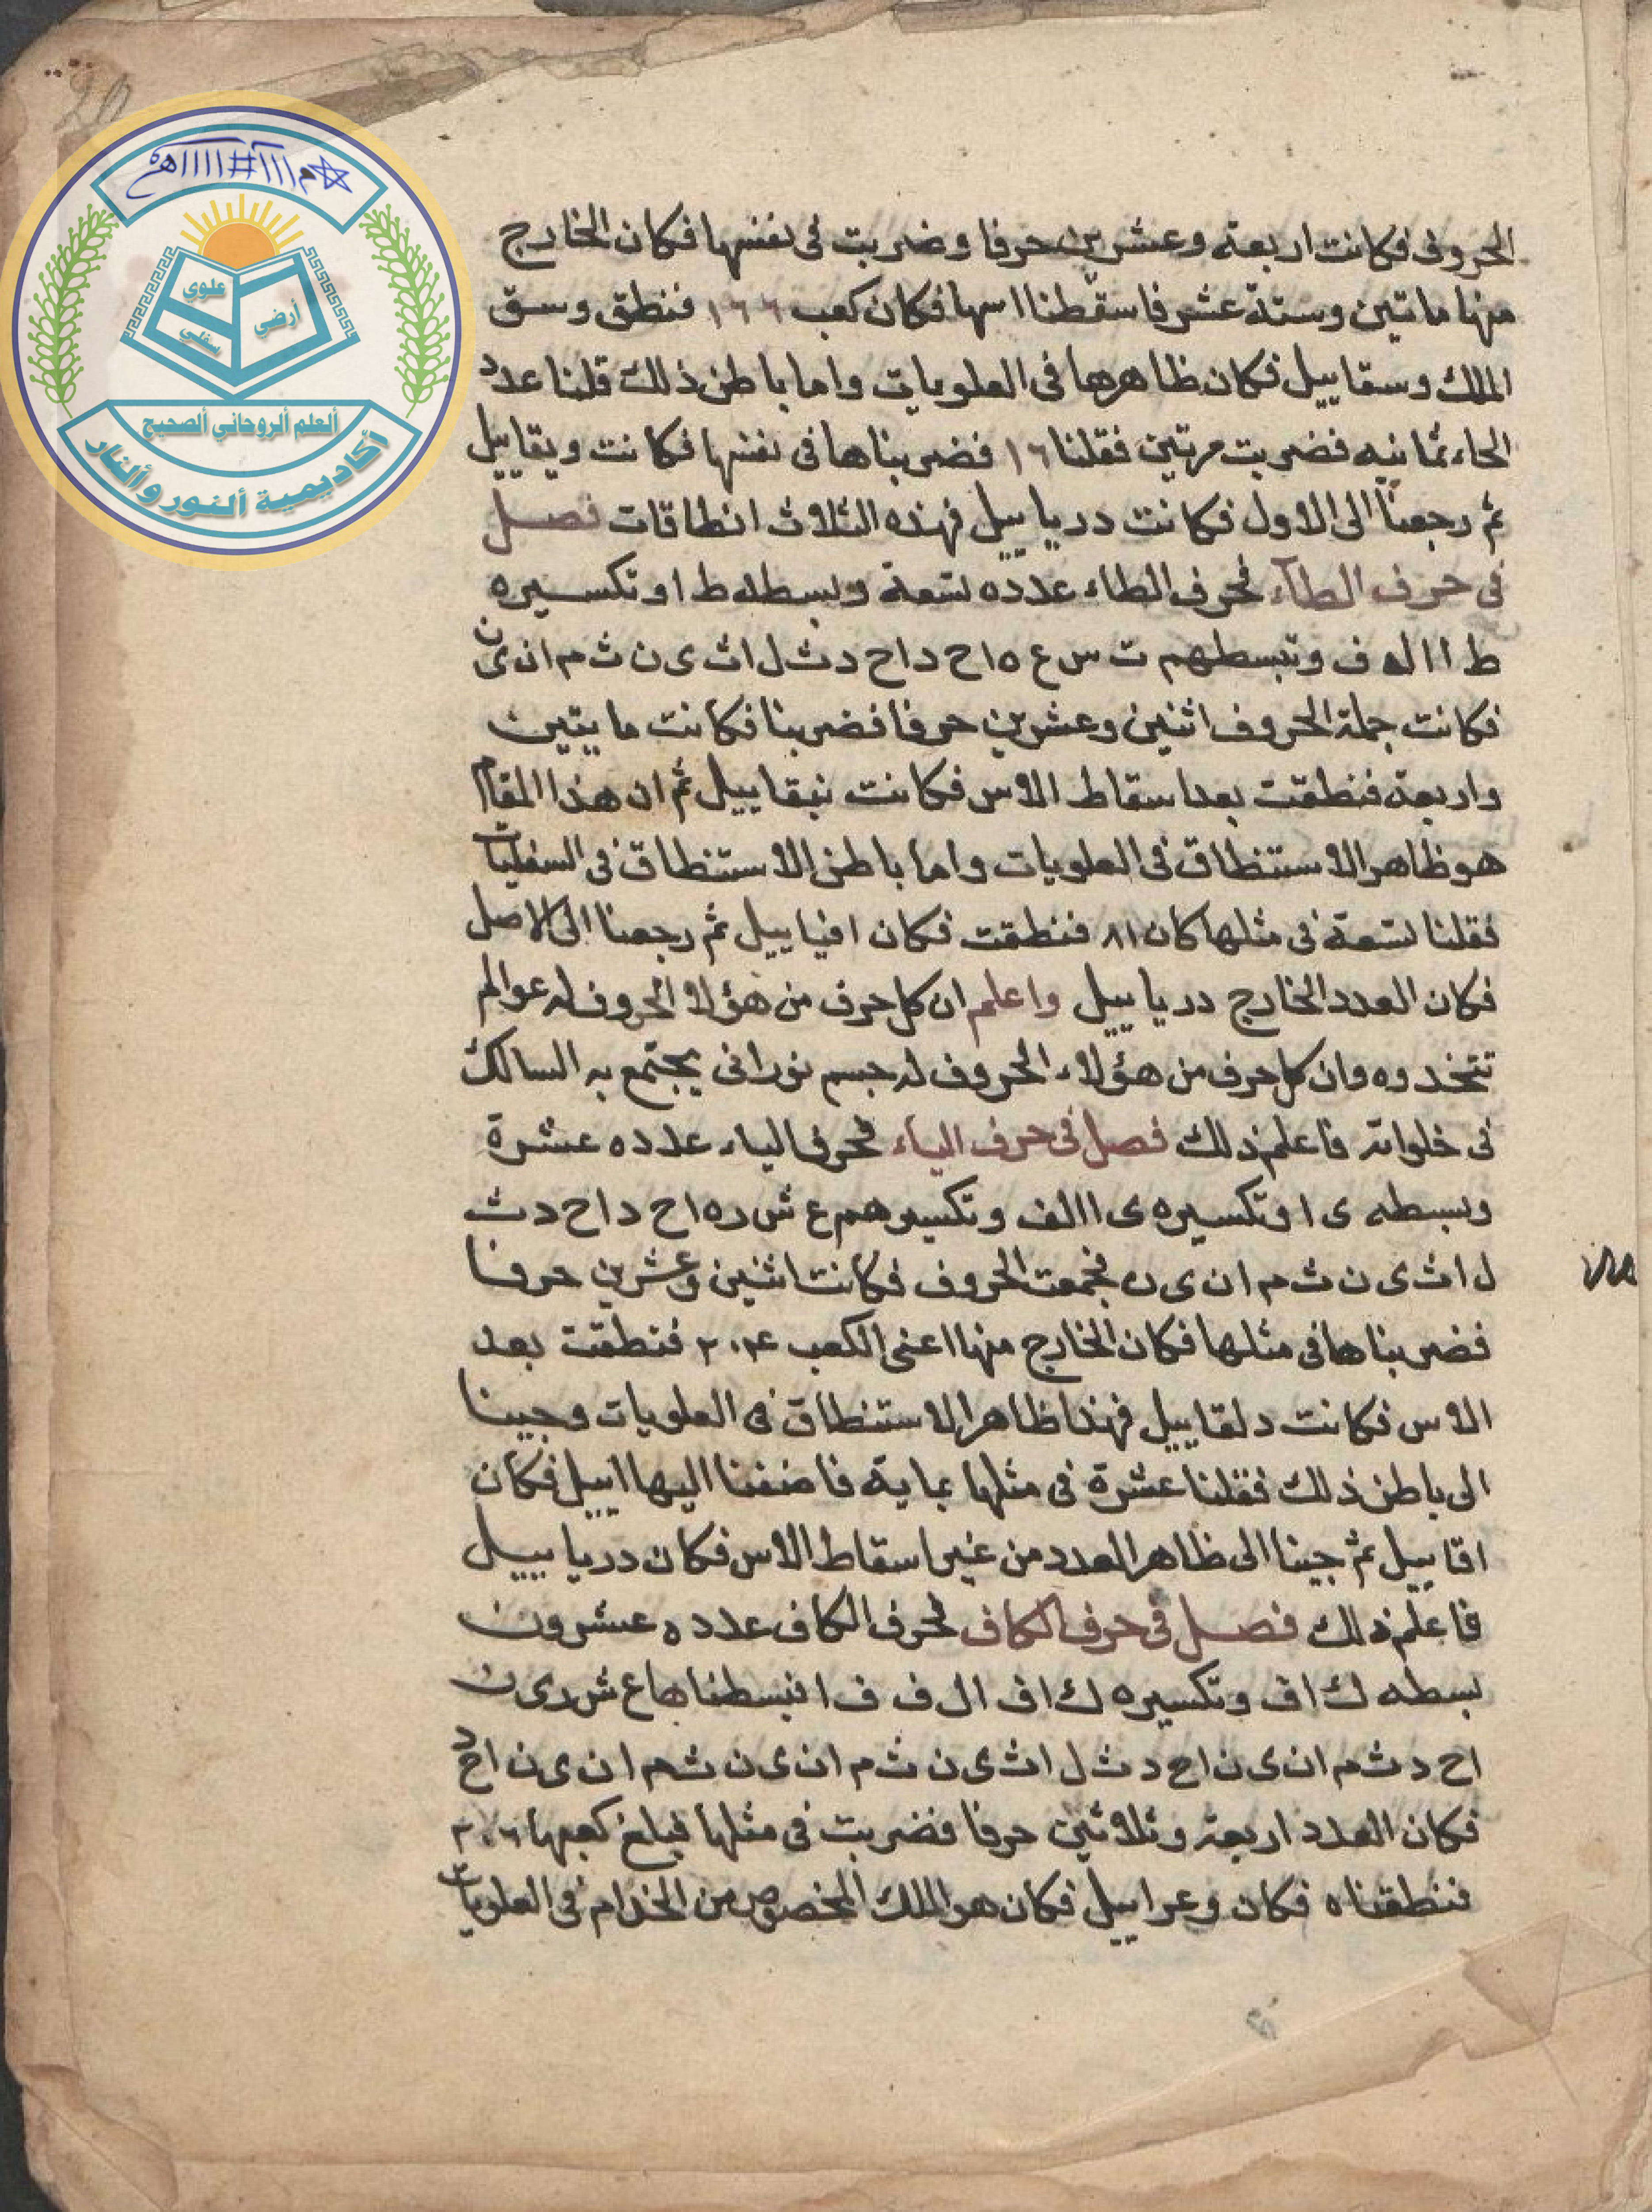 20
علوي
أرضي
سفلي
ألعلم ألروحاني ألصحيح
أكاديمية ألنور وألنار
الحروف فكانت اربعة وعشرين حرفا وضربت فى نفسها فكان الخارج
منها ماتين وستة عشر فاسقطنا اسها فكان كعب ١٦٦ فنطق وسق
الملك وسقاييل فكان ظاهرها فى العلويات واما باطن ذلك قلنا عدد
الحاء ثمانيه فضربت مرتين فقلنا ١٦ فضربناها فى نفسها فكانت ويقاييل
ثم رجعنا الى الاول فكانت دريابيل فهذه الثلاث انطاقات فصل
فى حرف الطآء فحرف الطاء عدده تسعة وبسطه ط ا وتكسيره
ط ا ا ل ف وتبسطهم ت س ع ه ا ح د ا ح د ث ل ا ث ى ن ث م ا ن ى ن
فكانت جملة الحروف اثنين وعشرين حرفا فضربنا فكانت مايتين
واربعة فنطقت بعد اسقاط الاس فكانت نبقاييل ثم ان هذا المقام
هو ظاهر الاستنطاق فى العلويات واما باطن الاستنطاق فى السفليات
فقلنا تسعة فى مثلها كان ٨١ فنطقت فكان افياييل ثم رجعنا الى الاصل
فكان العدد الخارج درياييل واعلم ان كل حرف من هؤلا الحروف له عوالم
تتخدوه وان كل حرف من هؤلاء الحروف له جسم نورانى يجتمع به السالك
فى خلواته فاعلم ذلك فصل فى حرف الياء فحرف الياء عدده عشرة
وبسطه ى ا وتكسيره ى ا ا ل ف وتكسيرهم ع ش ر ه ا ح د ا ح د ث
ل ا ث ى ن ث م ا ن ى ن فجمعت الحروف فكانت اثنين وعشرين حرفا
فضربناها فى مثلها فكان الخارج منها اعنى الكعب ٢٠٤ فنطقت بعد
الاس فكانت دلقاييل فهذا ظاهر الاستنطاق فى العلويات وجينا
الى باطن ذلك فقلنا عشرة فى مثلها بماية فاضفنا اليها اييل فكان
اقاييل ثم جينا الى ظاهر العدد من غير اسقاط الاس فكان درياييل
فاعلم ذلك فصل فى حرف الكاف فحرف الكاف عدده عشرون
بسطه ك ا ف وتكسيره ك ا ف ا ل ف ف ا فبسطناها ع ش ر ى ن
ا ح د ث م ا ن ى ن ا ح د ث ل ا ث ى ن ث م ا ن ى ن ث م ا ن ى ن ا ح د
فكان العدد اربعة وثلاثين حرفا فضربت فى مثلها فبلغ كعبها ٣٠٦
فنطقناه فكان وعراييل فكان هو الملك المخصوص من الخدام فى العلويات